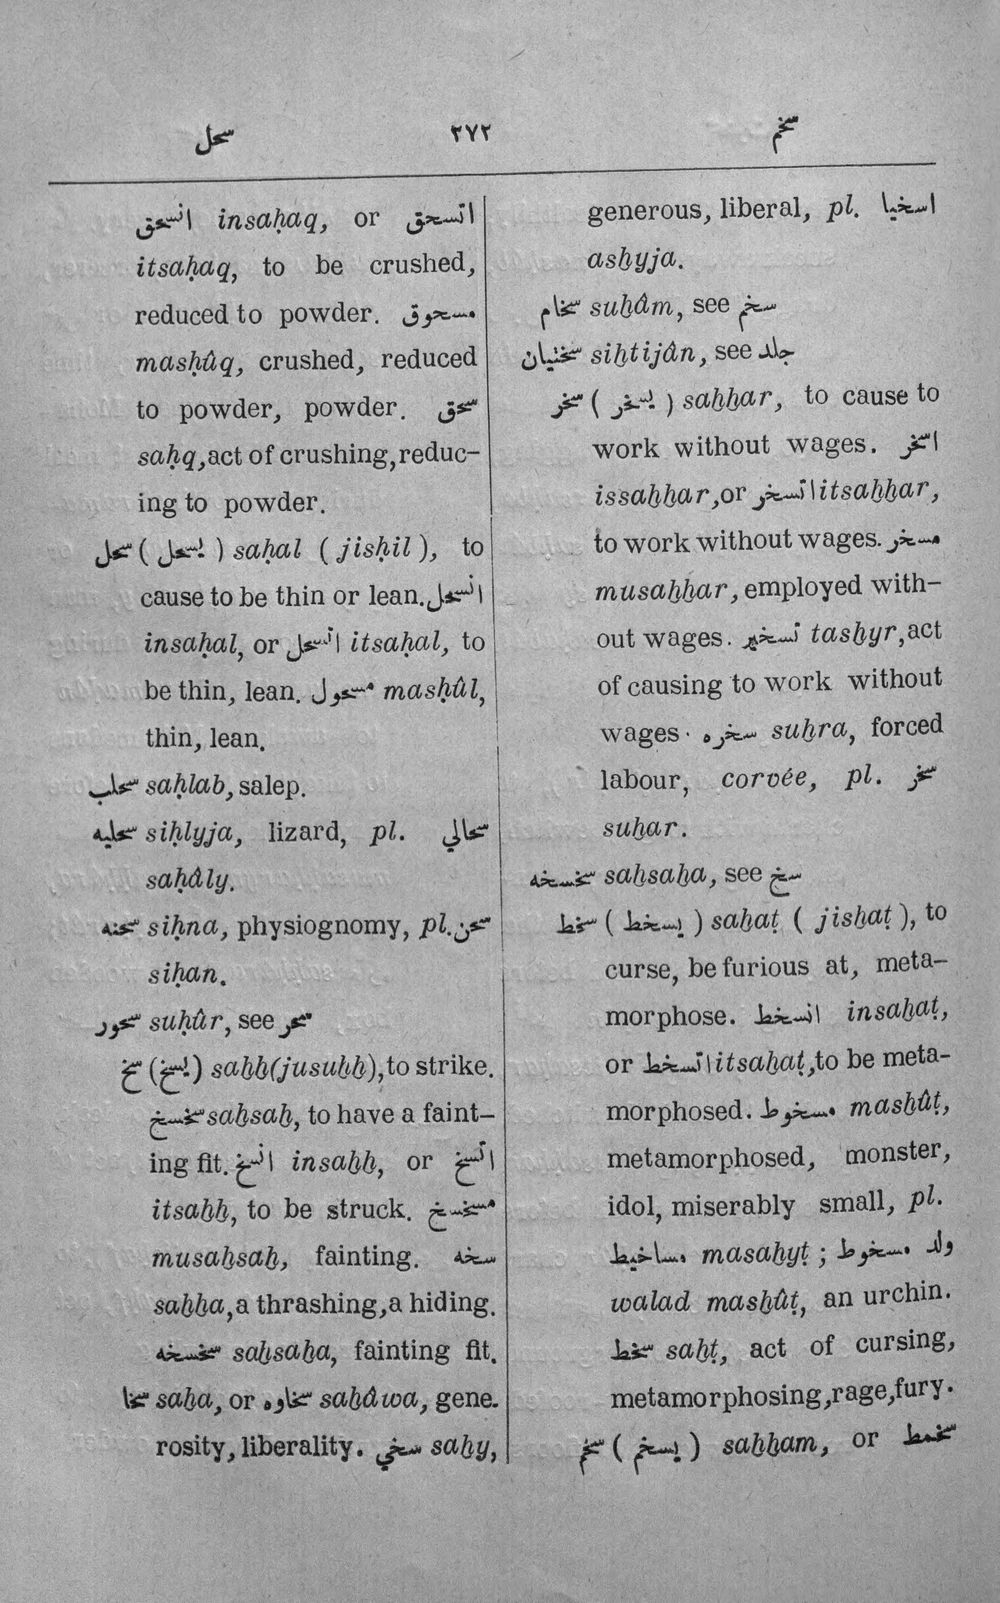 سحل ٢٧٢ سخم
انسحق insaḥaq, or اتسحق
itsaḥaq, to be crushed,
reduced to powder. مسحوق
masḥûq, crushed, reduced
to powder, powder. سحق
saḥq, act of crushing, reduc-
ing to powder.
سحل (يسحل) saḥal (jisḥil), to
cause to be thin or lean. انسحل
insaḥal, or اتسحل itsaḥal, to
be thin, lean. مسحول masḥûl,
thin, lean.
سحلب saḥlab, salep.
سحليه siḥlyja, lizard, pl. سحالي
saḥâly.
سحنه siḥna, physiognomy, pl. سحن
siḥan.
سحور suḥûr, see سحر
سخ (يسخ) saḫḫ (jusuḫḫ), to strike.
سخسخ saḫsaḫ, to have a faint-
ing fit. انسخ insaḫḫ, or اتسخ
itsaḫḫ, to be struck. مسخسخ
musaḫsaḫ, fainting. سخه
saḫḫa, a thrashing, a hiding.
سخسخه saḫsaḫa, fainting fit.
سخا saḫa, or سخاوه saḫâwa, gene.
rosity, liberality. سخي saḫy,
generous, liberal, pl. اسخيا
asḫyja.
سخام suḫâm, see سخم
سختيان siḫtijân, see جلد
سخر (يسخر) saḫḫar, to cause to
work without wages. اسخر
issaḫḫar, or اتسخر itsaḫḫar,
to work without wages. مسخر
musaḫḫar, employed with-
out wages. تسخير tasḫyr, act
of causing to work without
wages. سخره suḫra, forced
labour, corvée, pl. سخر
suḫar.
سخسخه saḫsaḫa, see سخ
سخط (يسخط) saḫaṭ (jisḫaṭ), to
curse, be furious at, meta-
morphose. انسخط insaḫaṭ,
or اتسخط itsaḫaṭ, to be meta-
morphosed. مسخوط masḫûṭ,
metamorphosed, monster,
idol, miserably small, pl.
مساخيط masaḫyṭ; ولد مسخوط
walad masḫûṭ, an urchin.
سخط saḫṭ, act of cursing,
metamorphosing, rage, fury.
سخم (يسخم) saḫḫam, or سخمط